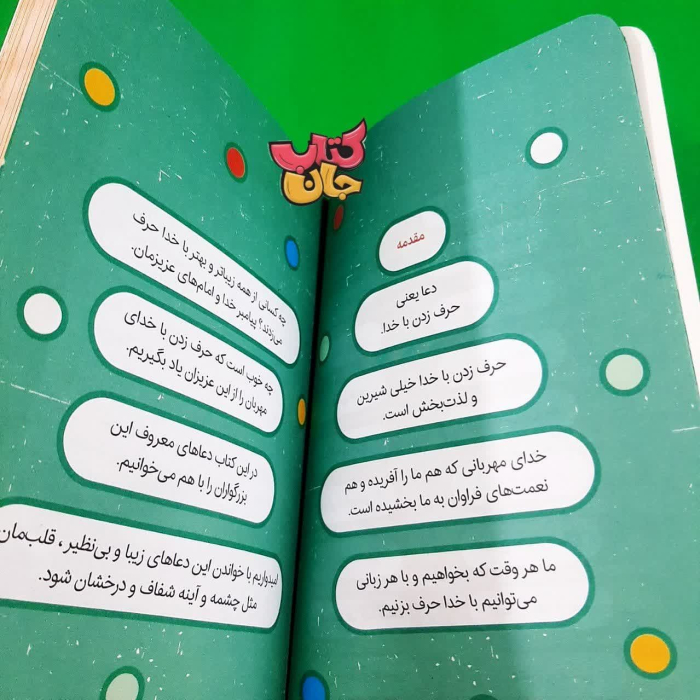 کتاب
جان
مقدمه
دعا یعنی
حرف زدن با خدا.
حرف زدن با خدا خیلی شیرین
و لذت‌بخش است.
خدای مهربانی که هم ما را آفریده و هم
نعمت‌های فراوان به ما بخشیده است.
ما هر وقت که بخواهیم و با هر زبانی
می‌توانیم با خدا حرف بزنیم.
چه کسانی از همه زیباتر و بهتر با خدا حرف
می‌زدند؟ پیامبر خدا و امام‌های عزیزمان.
چه خوب است که حرف زدن با خدای
مهربان را از این عزیزان یاد بگیریم.
در این کتاب دعاهای معروف این
بزرگواران را با هم می‌خوانیم.
امیدواریم با خواندن این دعاهای زیبا و بی‌نظیر، قلب‌مان
مثل چشمه و آینه شفاف و درخشان شود.